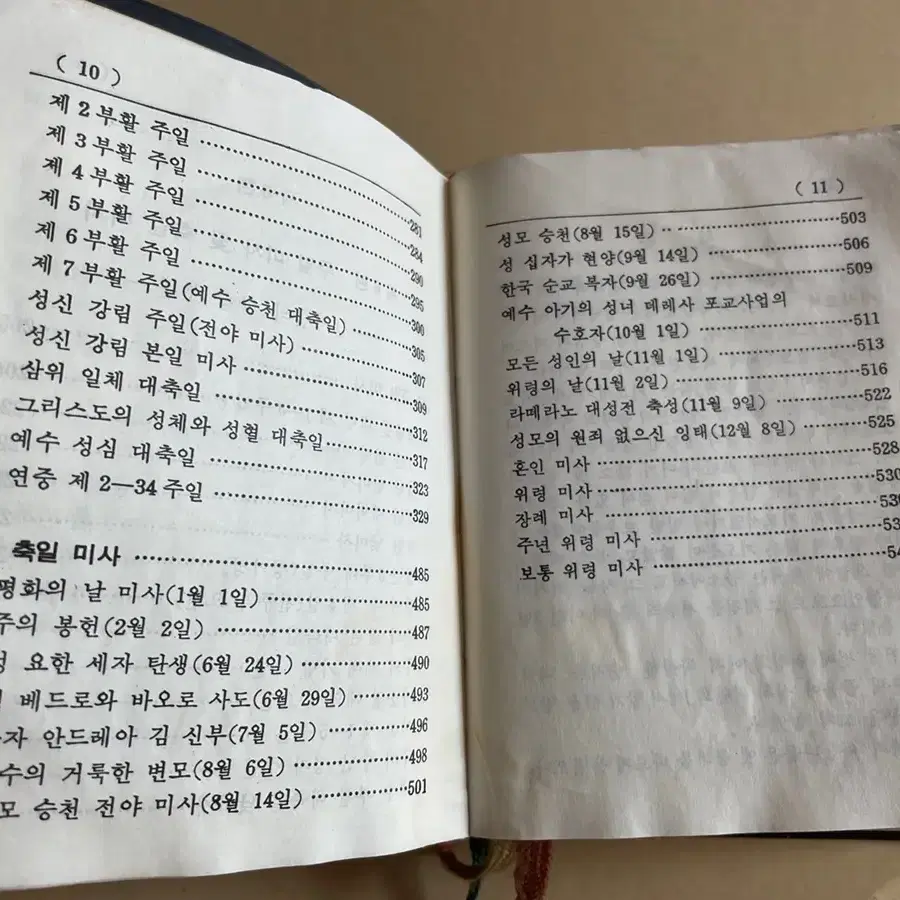 ( 10 )
제 2 부활 주일 ……281
제 3 부활 주일 ……284
제 4 부활 주일 ……290
제 5 부활 주일 ……295
제 6 부활 주일 ……300
제 7 부활 주일(예수 승천 대축일) ……305
성신 강림 주일(전야 미사) ……307
성신 강림 본일 미사 ……309
삼위 일체 대축일 ……312
그리스도의 성체와 성혈 대축일 ……317
예수 성심 대축일 ……323
연중 제 2—34 주일 ……329
축일 미사 ……485
평화의 날 미사(1월 1일) ……485
주의 봉헌(2월 2일) ……487
요한 세자 탄생(6월 24일) ……490
베드로와 바오로 사도(6월 29일) ……493
안드레아 김 신부(7월 5일) ……496
거룩한 변모(8월 6일) ……498
승천 전야 미사(8월 14일) ……501
( 11 )
성모 승천(8월 15일) ……503
성 십자가 현양(9월 14일) ……506
한국 순교 복자(9월 26일) ……509
예수 아기의 성녀 데레사 포교사업의
수호자(10월 1일) ……511
모든 성인의 날(11월 1일) ……513
위령의 날(11월 2일) ……516
라떼라노 대성전 축성(11월 9일) ……522
성모의 원죄 없으신 잉태(12월 8일) ……525
혼인 미사 ……528
위령 미사 ……530
장례 미사 ……
주년 위령 미사 ……
보통 위령 미사 ……